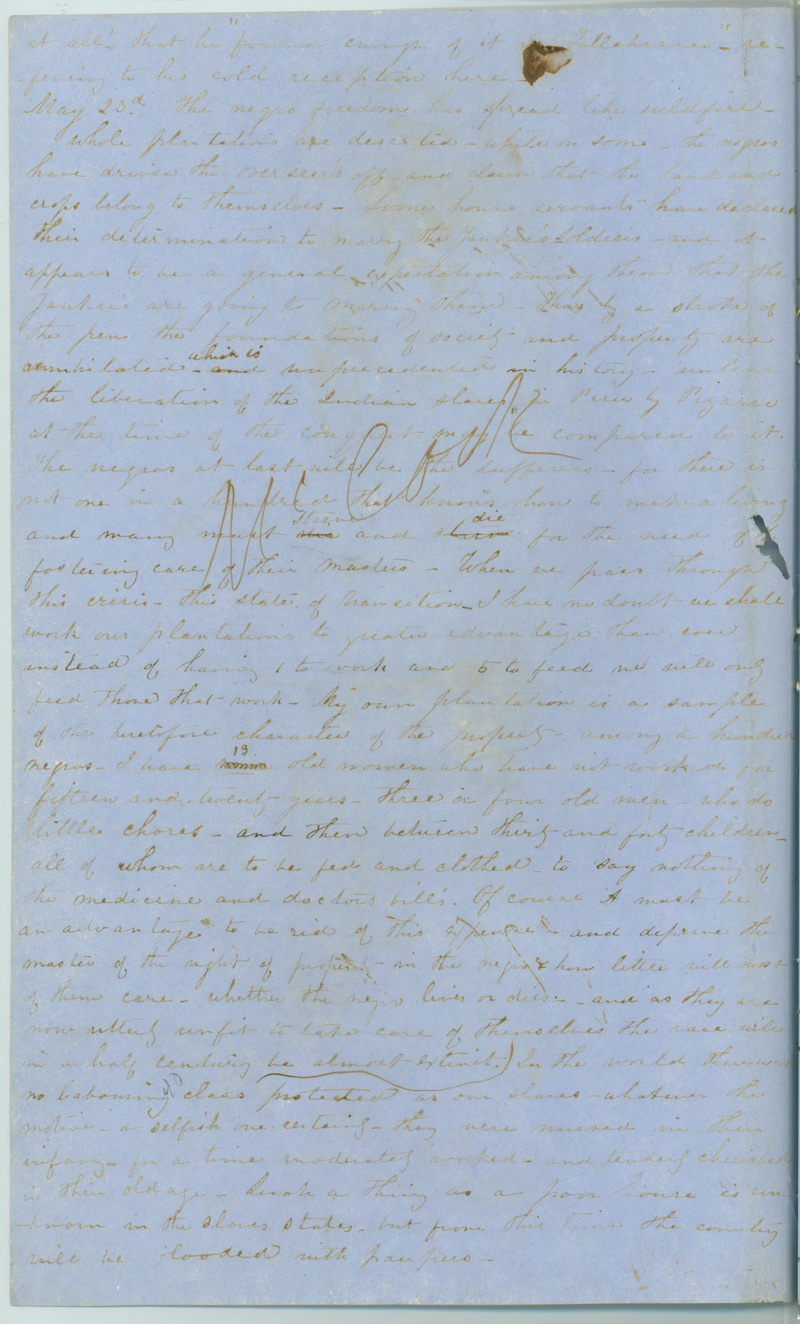 at all" that he "found enough of it Tallahassee" - re-
-fering to his cold reception here -
May 23d The negro freedom has spread like wildfire -
whole plantations are deserted - while on some - the negros
have driven the overseers off - and claim that the land and
crops belong to themselves - Some house servants have declared
their determination to marry the Yankee soldiers - and it
appears to be a general expectation among them that the
Yankees are going to marry them - Thus by a stroke of
the pen the foundations of society and property are
annihilated - which is unprecedented in history - unless
the liberation of the Indian slaves in Peru by Pizarro
at the time of the conquest may be compared to it.
The negros at last will be the sufferers - for there is
not one in a hundred that knows how to make a living
and many must starve and die for the need of a
fostering care of their masters - When we pass through
this crisis - this state of transition - I have no doubt we shall
work our plantations to greater advantage than ever
instead of having 1 to work and 5 to feed we will only
feed those that work - My own plantation is a sample
of the heretofore character of the property - among a hundred
negros - I have 13 old women who have not worked for
fifteen and twenty years - three or four old men - who do
little chores - and then between thirty and forty children -
all of whom are to be fed and clothed - to say nothing of
the medicine and doctors bills. Of course it must be
an advantage to be rid of this expense - and deprive the
master of the right of property in the negro & how little will most
of them care - whether the negro lives or dies - and as they are
now utterly unfit to take care of themselves the race will
in a half century be almost extinct.) In the world there was
no labouring class so protected as our slaves - whatever the
motive - a selfish one certainly - they were nursed in their
infancy - for a time moderately worked - and tenderly cherished
in their old age - Such a thing as a poor house is un-
-known in the slaves states - but from this time the country
will be flooded with paupers -